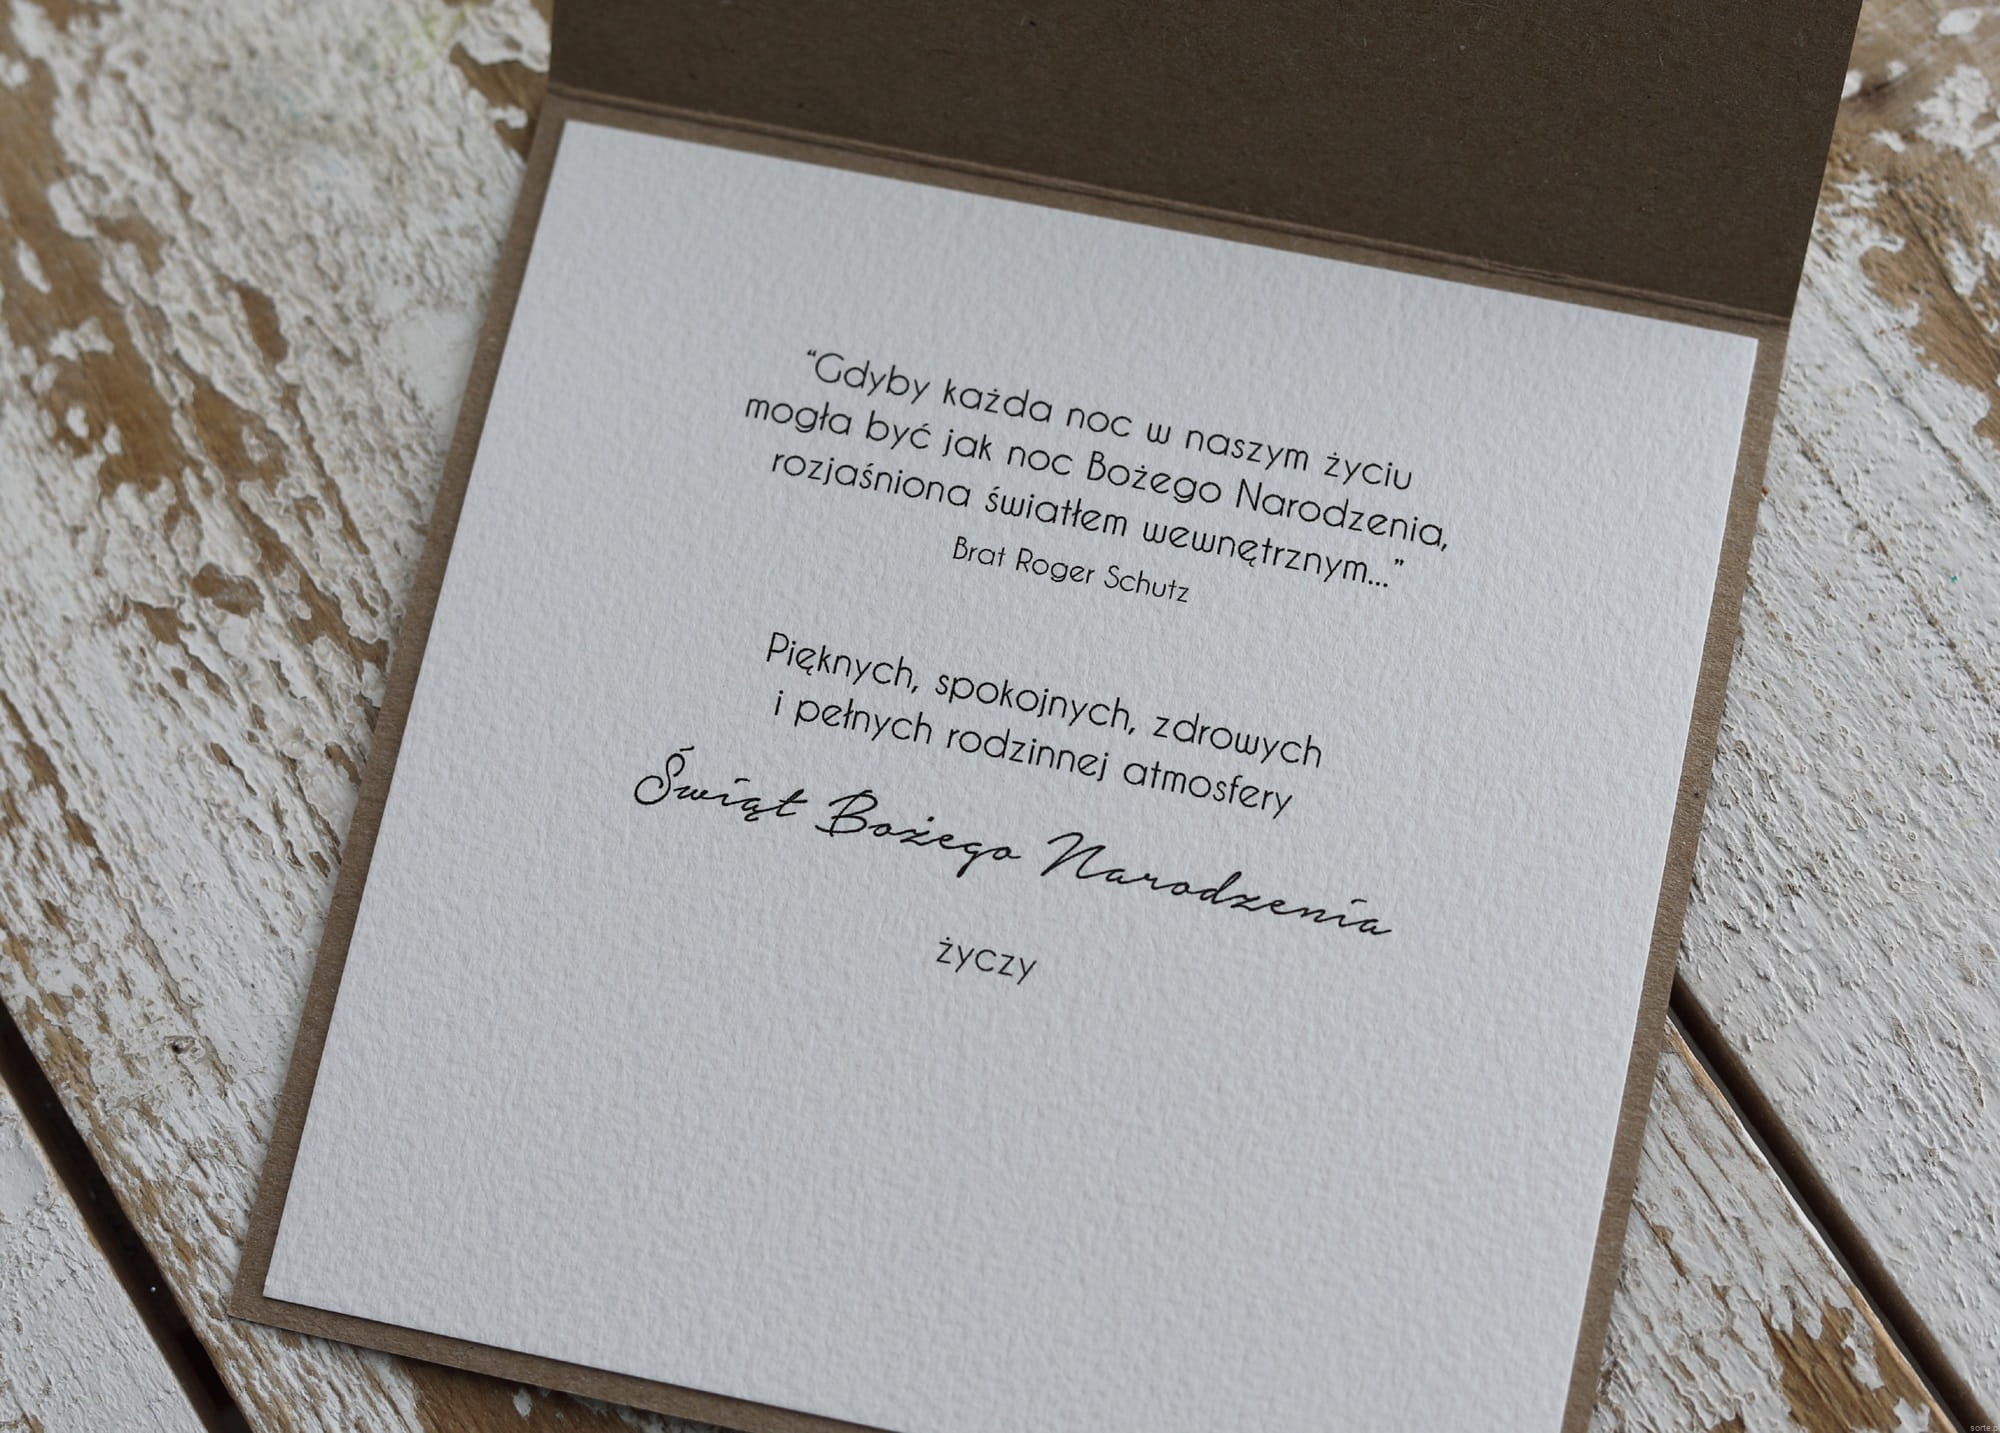 “Gdyby każda noc w naszym życiu
mogła być jak noc Bożego Narodzenia,
rozjaśniona światłem wewnętrznym...”
Brat Roger Schutz
Pięknych, spokojnych, zdrowych
i pełnych rodzinnej atmosfery
Świąt Bożego Narodzenia
życzy